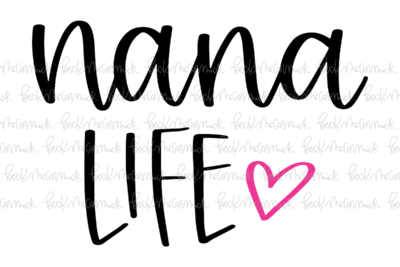 nana
LIFE